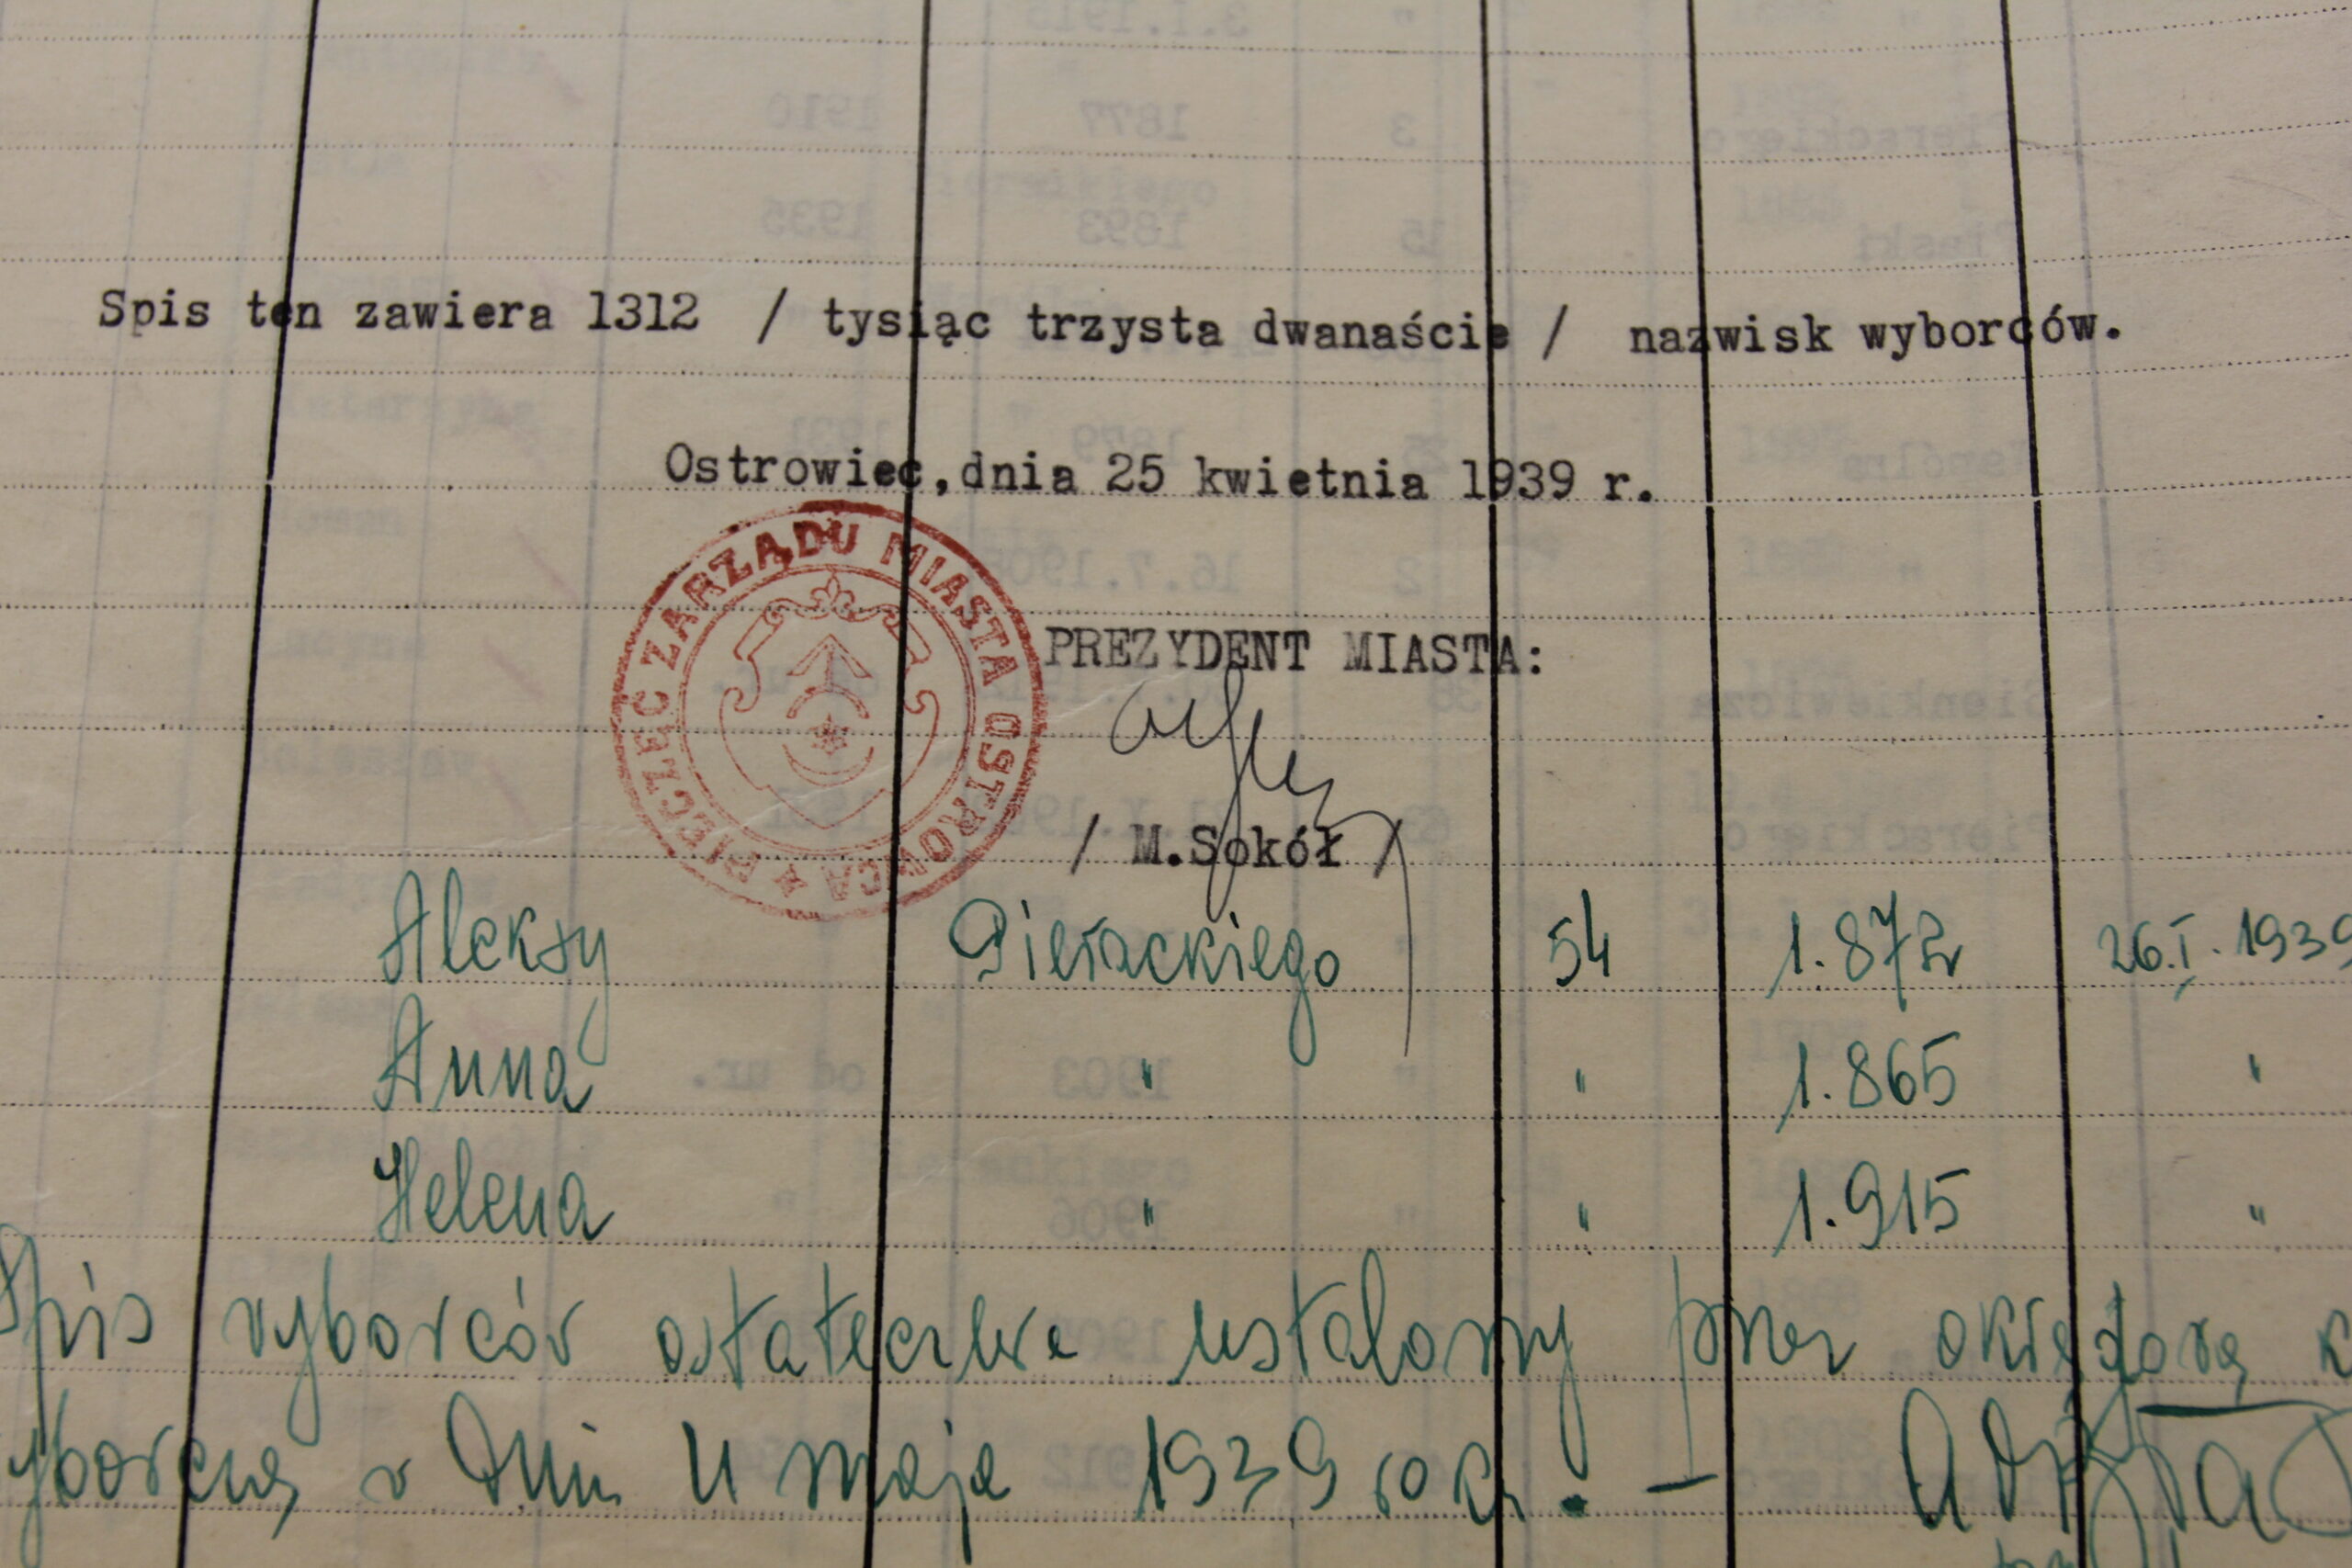 Spis ten zawiera 1312 / tysiąc trzysta dwanaście / nazwisk wyborców.
Ostrowiec,dnia 25 kwietnia 1939 r.
PIECZĘĆ ZARZĄDU MIASTA OSTROWCA
PREZYDENT MIASTA:
/ M.Sokół /
Aleksy Pierackiego 54 1.872 26.I.1939
Anna " " 1.865 "
Helena " " 1.915 "
Spis wyborców ostatecznie ustalony przez okręgową k
yborczą w dniu 11 maja 1939 roku. —